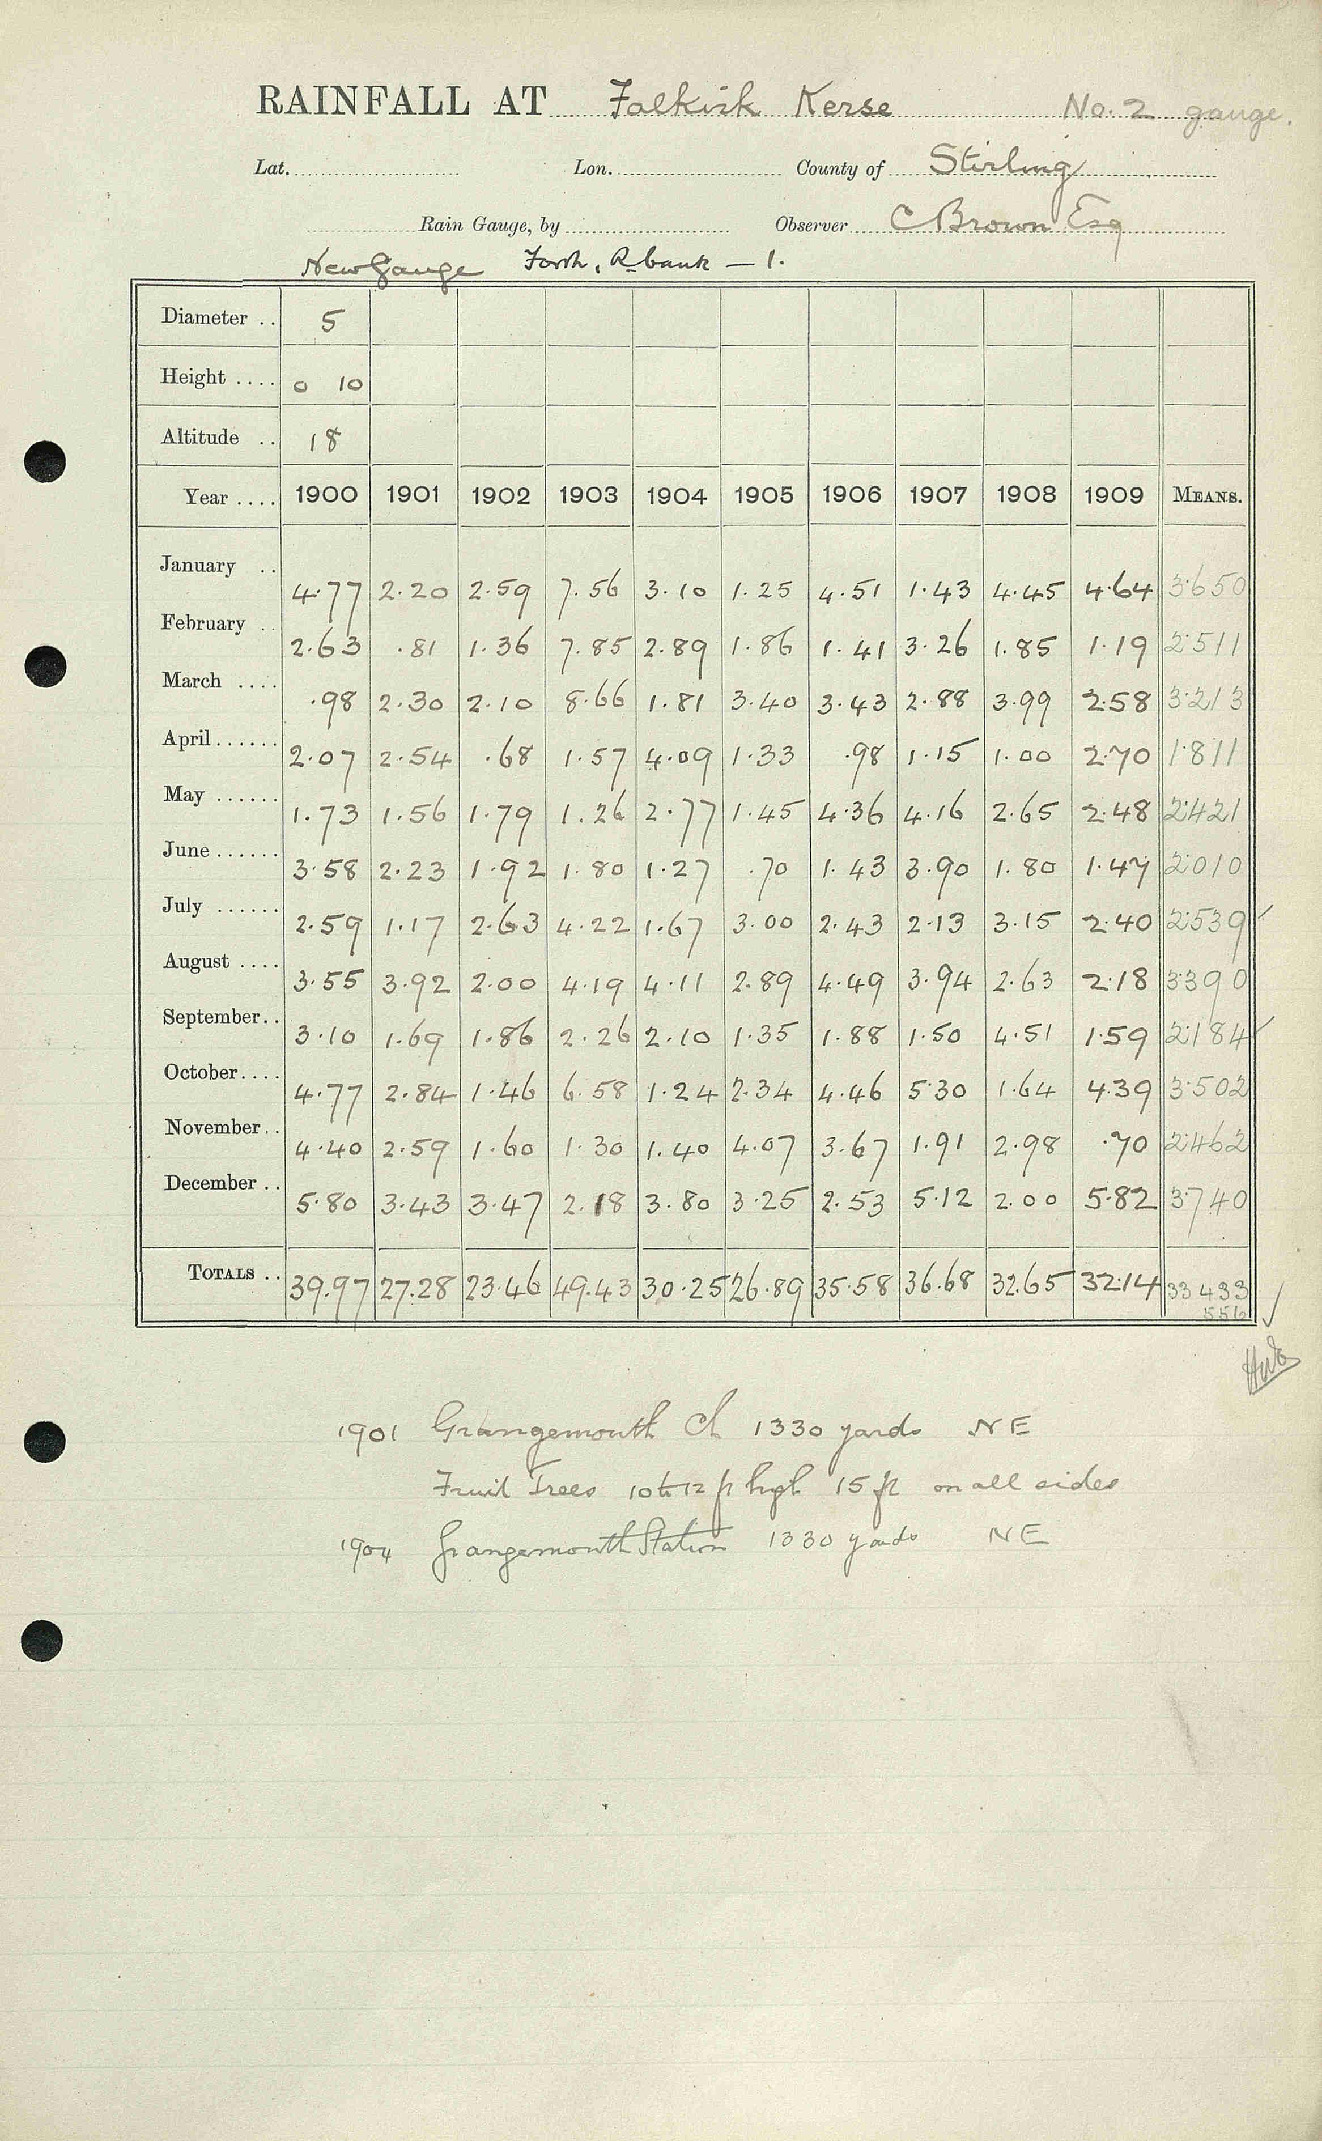 RAINFALL AT Falkirk Kerse No. 2 gauge.
Lat. Lon. County of Stirling
Rain Gauge, by Observer C Brown Esq
New Gauge Forth, R bank — 1.
Diameter .. 5
Height .... 0 10
Altitude .. 18
Year .... 1900 1901 1902 1903 1904 1905 1906 1907 1908 1909 MEANS.
January .. 4.77 2.20 2.59 7.56 3.10 1.25 4.51 1.43 4.45 4.64 3.650
February .. 2.63 .81 1.36 7.85 2.89 1.86 1.41 3.26 1.85 1.19 2.511
March .... .98 2.30 2.10 8.66 1.81 3.40 3.43 2.88 3.99 2.58 3.213
April ...... 2.07 2.54 .68 1.57 4.09 1.33 .98 1.15 1.00 2.70 1.811
May ...... 1.73 1.56 1.79 1.26 2.77 1.45 4.36 4.16 2.65 2.48 2.421
June ...... 3.58 2.23 1.92 1.80 1.27 .70 1.43 3.90 1.80 1.47 2.010
July ...... 2.59 1.17 2.63 4.22 1.67 3.00 2.43 2.13 3.15 2.40 2.539 ✓
August .... 3.55 3.92 2.00 4.19 4.11 2.89 4.49 3.94 2.63 2.18 3.390
September .. 3.10 1.69 1.86 2.26 2.10 1.35 1.88 1.50 4.51 1.59 2.184 ✓
October .... 4.77 2.84 1.46 6.58 1.24 2.34 4.46 5.30 1.64 4.39 3.502
November .. 4.40 2.59 1.60 1.30 1.40 4.07 3.67 1.91 2.98 .70 2.462
December .. 5.80 3.43 3.47 2.18 3.80 3.25 2.53 5.12 2.00 5.82 3.740
TOTALS .. 39.97 27.28 23.46 49.43 30.25 26.89 35.58 36.68 32.65 32.14 33.433 ✓
1901 Grangemouth Ch 1330 yards NE
Fruit Trees 10 to 12 ft high 15 ft on all sides
1904 Grangemouth Station 1330 yards NE